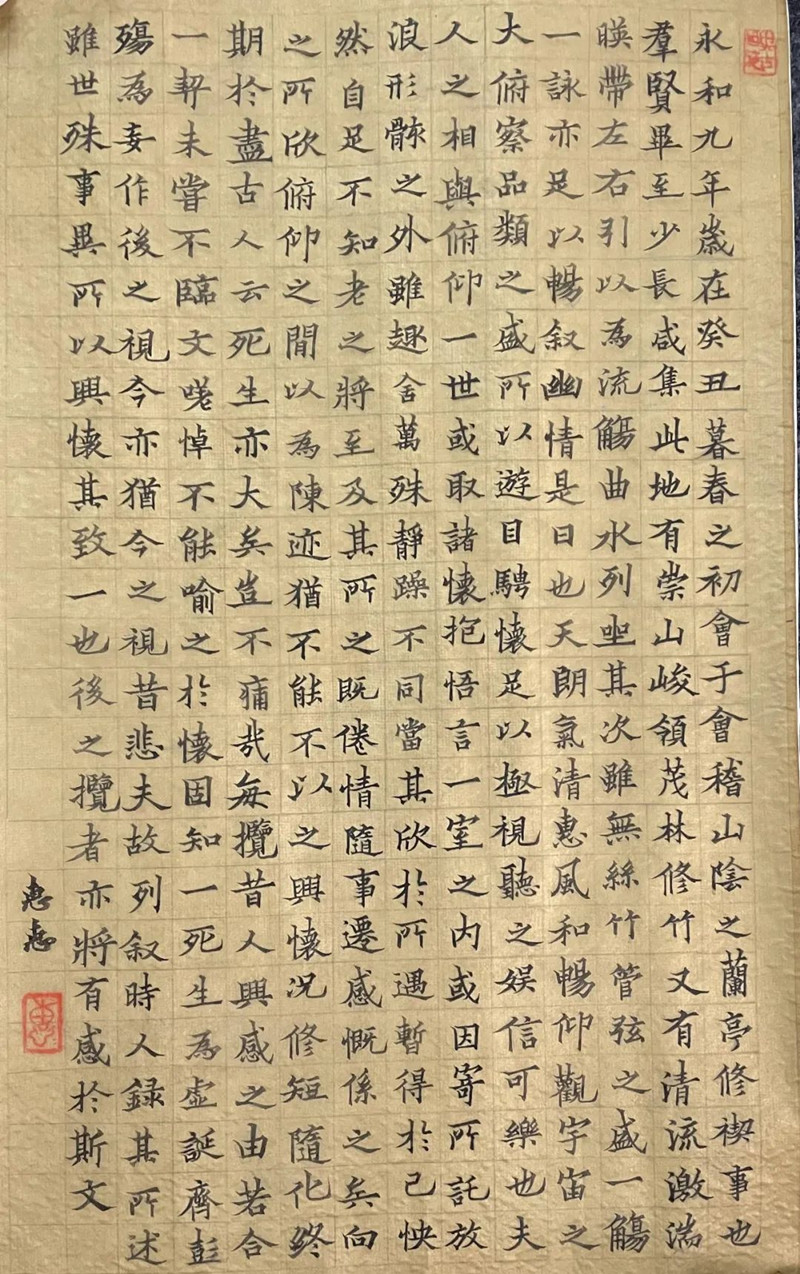 永和九年歲在癸丑暮春之初會于會稽山陰之蘭亭修禊事也
羣賢畢至少長咸集此地有崇山峻領茂林修竹又有清流激湍
暎帶左右引以為流觴曲水列坐其次雖無絲竹管弦之盛一觴
一詠亦足以暢叙幽情是日也天朗氣清惠風和暢仰觀宇宙之
大俯察品類之盛所以遊目騁懷足以極視聽之娱信可樂也夫
人之相與俯仰一世或取諸懷抱悟言一室之内或因寄所託放
浪形骸之外雖趣舍萬殊靜躁不同當其欣於所遇暫得於己怏
然自足不知老之將至及其所之既倦情隨事遷感慨係之矣向
之所欣俯仰之間以為陳迹猶不能不以之興懷況修短隨化終
期於盡古人云死生亦大矣豈不痛哉每攬昔人興感之由若合
一契未嘗不臨文嗟悼不能喻之於懷固知一死生為虛誕齊彭
殤為妄作後之視今亦猶今之視昔悲夫故列叙時人録其所述
雖世殊事異所以興懷其致一也後之攬者亦將有感於斯文
惠惠